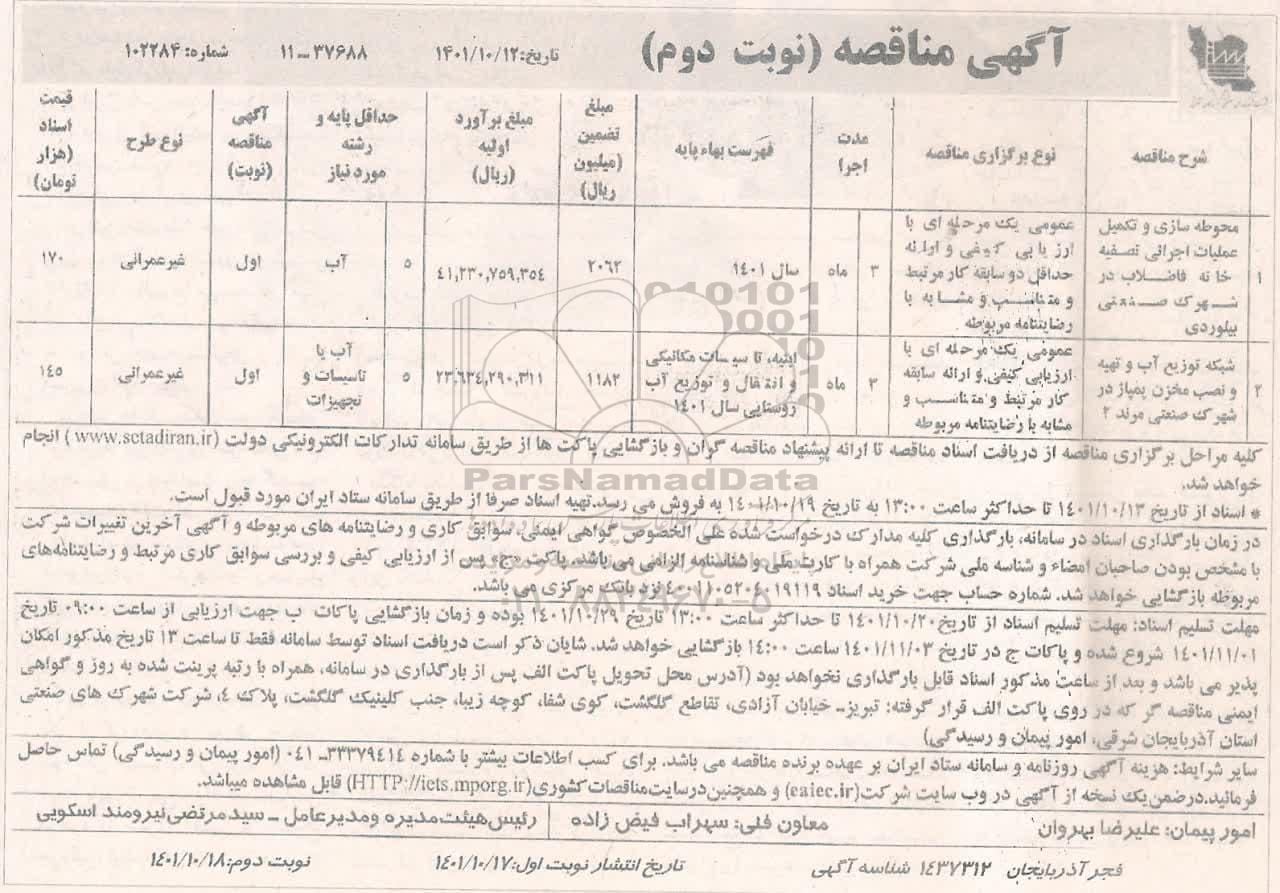 آگهی مناقصه (نوبت دوم)
تاریخ: ۱۴۰۱/۱۰/۱۲
۱۱ ــ ۳۷۶۸۸
شماره: ۱۰۲۲۸۴
شرح مناقصه
نوع برگزاری مناقصه
مدت
اجرا
فهرست بهاء پایه
مبلغ
تضمین
(میلیون
ریال)
مبلغ برآورد
اولیه
(ریال)
حداقل پایه و
رشته
مورد نیاز
آگهی
مناقصه
(نوبت)
نوع طرح
قیمت
اسناد
(هزار
تومان)
۱
محوطه سازی و تکمیل
عملیات اجرائی تصفیه
خانه فاضلاب در
شهرک صنعتی
بیلوردی
عمومی یک مرحله ای با
ارزیابی کیفی و ارائه
حداقل دو سابقه کار مرتبط
و متناسب و مشابه با
رضایتنامه مربوطه
۳
ماه
سال ۱۴۰۱
۲۰۶۲
۴۱,۲۳۰,۷۵۹,۳۵۴
۵
آب
اول
غیرعمرانی
۱۷۰
۲
شبکه توزیع آب و تهیه
و نصب مخزن پمپاژ در
شهرک صنعتی مرند ۲
عمومی یک مرحله ای با
ارزیابی کیفی و ارائه سابقه
کار مرتبط و متناسب و
مشابه با رضایتنامه مربوطه
۳
ماه
ابنیه، تاسیسات مکانیکی
و انتقال و توزیع آب
روستایی سال ۱۴۰۱
۱۱۸۲
۲۳,۶۳۴,۲۹۰,۳۱۱
۵
آب یا
تاسیسات و
تجهیزات
اول
غیرعمرانی
۱۴۵
کلیه مراحل برگزاری مناقصه از دریافت اسناد مناقصه تا ارائه پیشنهاد مناقصه گران و بازگشایی پاکت ها از طریق سامانه تدارکات الکترونیکی دولت (www.setadiran.ir) انجام
خواهد شد.
* اسناد از تاریخ ۱۴۰۱/۱۰/۱۳ تا حداکثر ساعت ۱۳:۰۰ به تاریخ ۱۴۰۱/۱۰/۱۹ به فروش می رسد.تهیه اسناد صرفا از طریق سامانه ستاد ایران مورد قبول است.
در زمان بارگذاری اسناد در سامانه، بارگذاری کلیه مدارک درخواست شده علی الخصوص گواهی ایمنی، سوابق کاری و رضایتنامه های مربوطه و آگهی آخرین تغییرات شرکت
با مشخص بودن صاحبان امضاء و شناسه ملی شرکت همراه با کارت ملی و شناسنامه الزامی می باشد. پاکت «ج» پس از ارزیابی کیفی و بررسی سوابق کاری مرتبط و رضایتنامه‌های
مربوطه بازگشایی خواهد شد. شماره حساب جهت خرید اسناد ۴۰۰۱۱۰۵۲۰۴۰۱۹۱۱۹ نزد بانک مرکزی می باشد.
مهلت تسلیم اسناد: مهلت تسلیم اسناد از تاریخ ۱۴۰۱/۱۰/۲۰ تا حداکثر ساعت ۱۳:۰۰ تاریخ ۱۴۰۱/۱۰/۲۹ بوده و زمان بازگشایی پاکات ب جهت ارزیابی از ساعت ۰۹:۰۰ تاریخ
۱۴۰۱/۱۱/۰۱ شروع شده و پاکات ج در تاریخ ۱۴۰۱/۱۱/۰۳ ساعت ۱۴:۰۰ بازگشایی خواهد شد. شایان ذکر است دریافت اسناد توسط سامانه فقط تا ساعت ۱۳ تاریخ مذکور امکان
پذیر می باشد و بعد از ساعت مذکور اسناد قابل بارگذاری نخواهد بود (آدرس محل تحویل پاکت الف پس از بارگذاری در سامانه، همراه با رتبه پرینت شده به روز و گواهی
ایمنی مناقصه گر که در روی پاکت الف قرار گرفته: تبریزـ خیابان آزادی، تقاطع گلگشت، کوی شفا، کوچه زیبا، جنب کلینیک گلگشت، پلاک ۴، شرکت شهرک های صنعتی
استان آذربایجان شرقی، امور پیمان و رسیدگی)
سایر شرایط: هزینه آگهی روزنامه و سامانه ستاد ایران بر عهده برنده مناقصه می باشد. برای کسب اطلاعات بیشتر با شماره ۳۳۳۷۹۴۱۴ـ ۰۴۱ (امور پیمان و رسیدگی) تماس حاصل
فرمائید.درضمن یک نسخه از آگهی در وب سایت شرکت(eaiec.ir) و همچنین درسایت مناقصات کشوری(HTTP://iets.mporg.ir) قابل مشاهده میباشد.
امور پیمان: علیرضا بهروان
معاون فنی: سهراب فیض زاده
رئیس هیئت مدیره ومدیرعامل ــ سید مرتضی نیرومند اسکویی
فجر آذربایجان ۱۴۳۷۳۱۲ شناسه آگهی
تاریخ انتشار نوبت اول: ۱۴۰۱/۱۰/۱۷
نوبت دوم: ۱۴۰۱/۱۰/۱۸
ParsNamadData